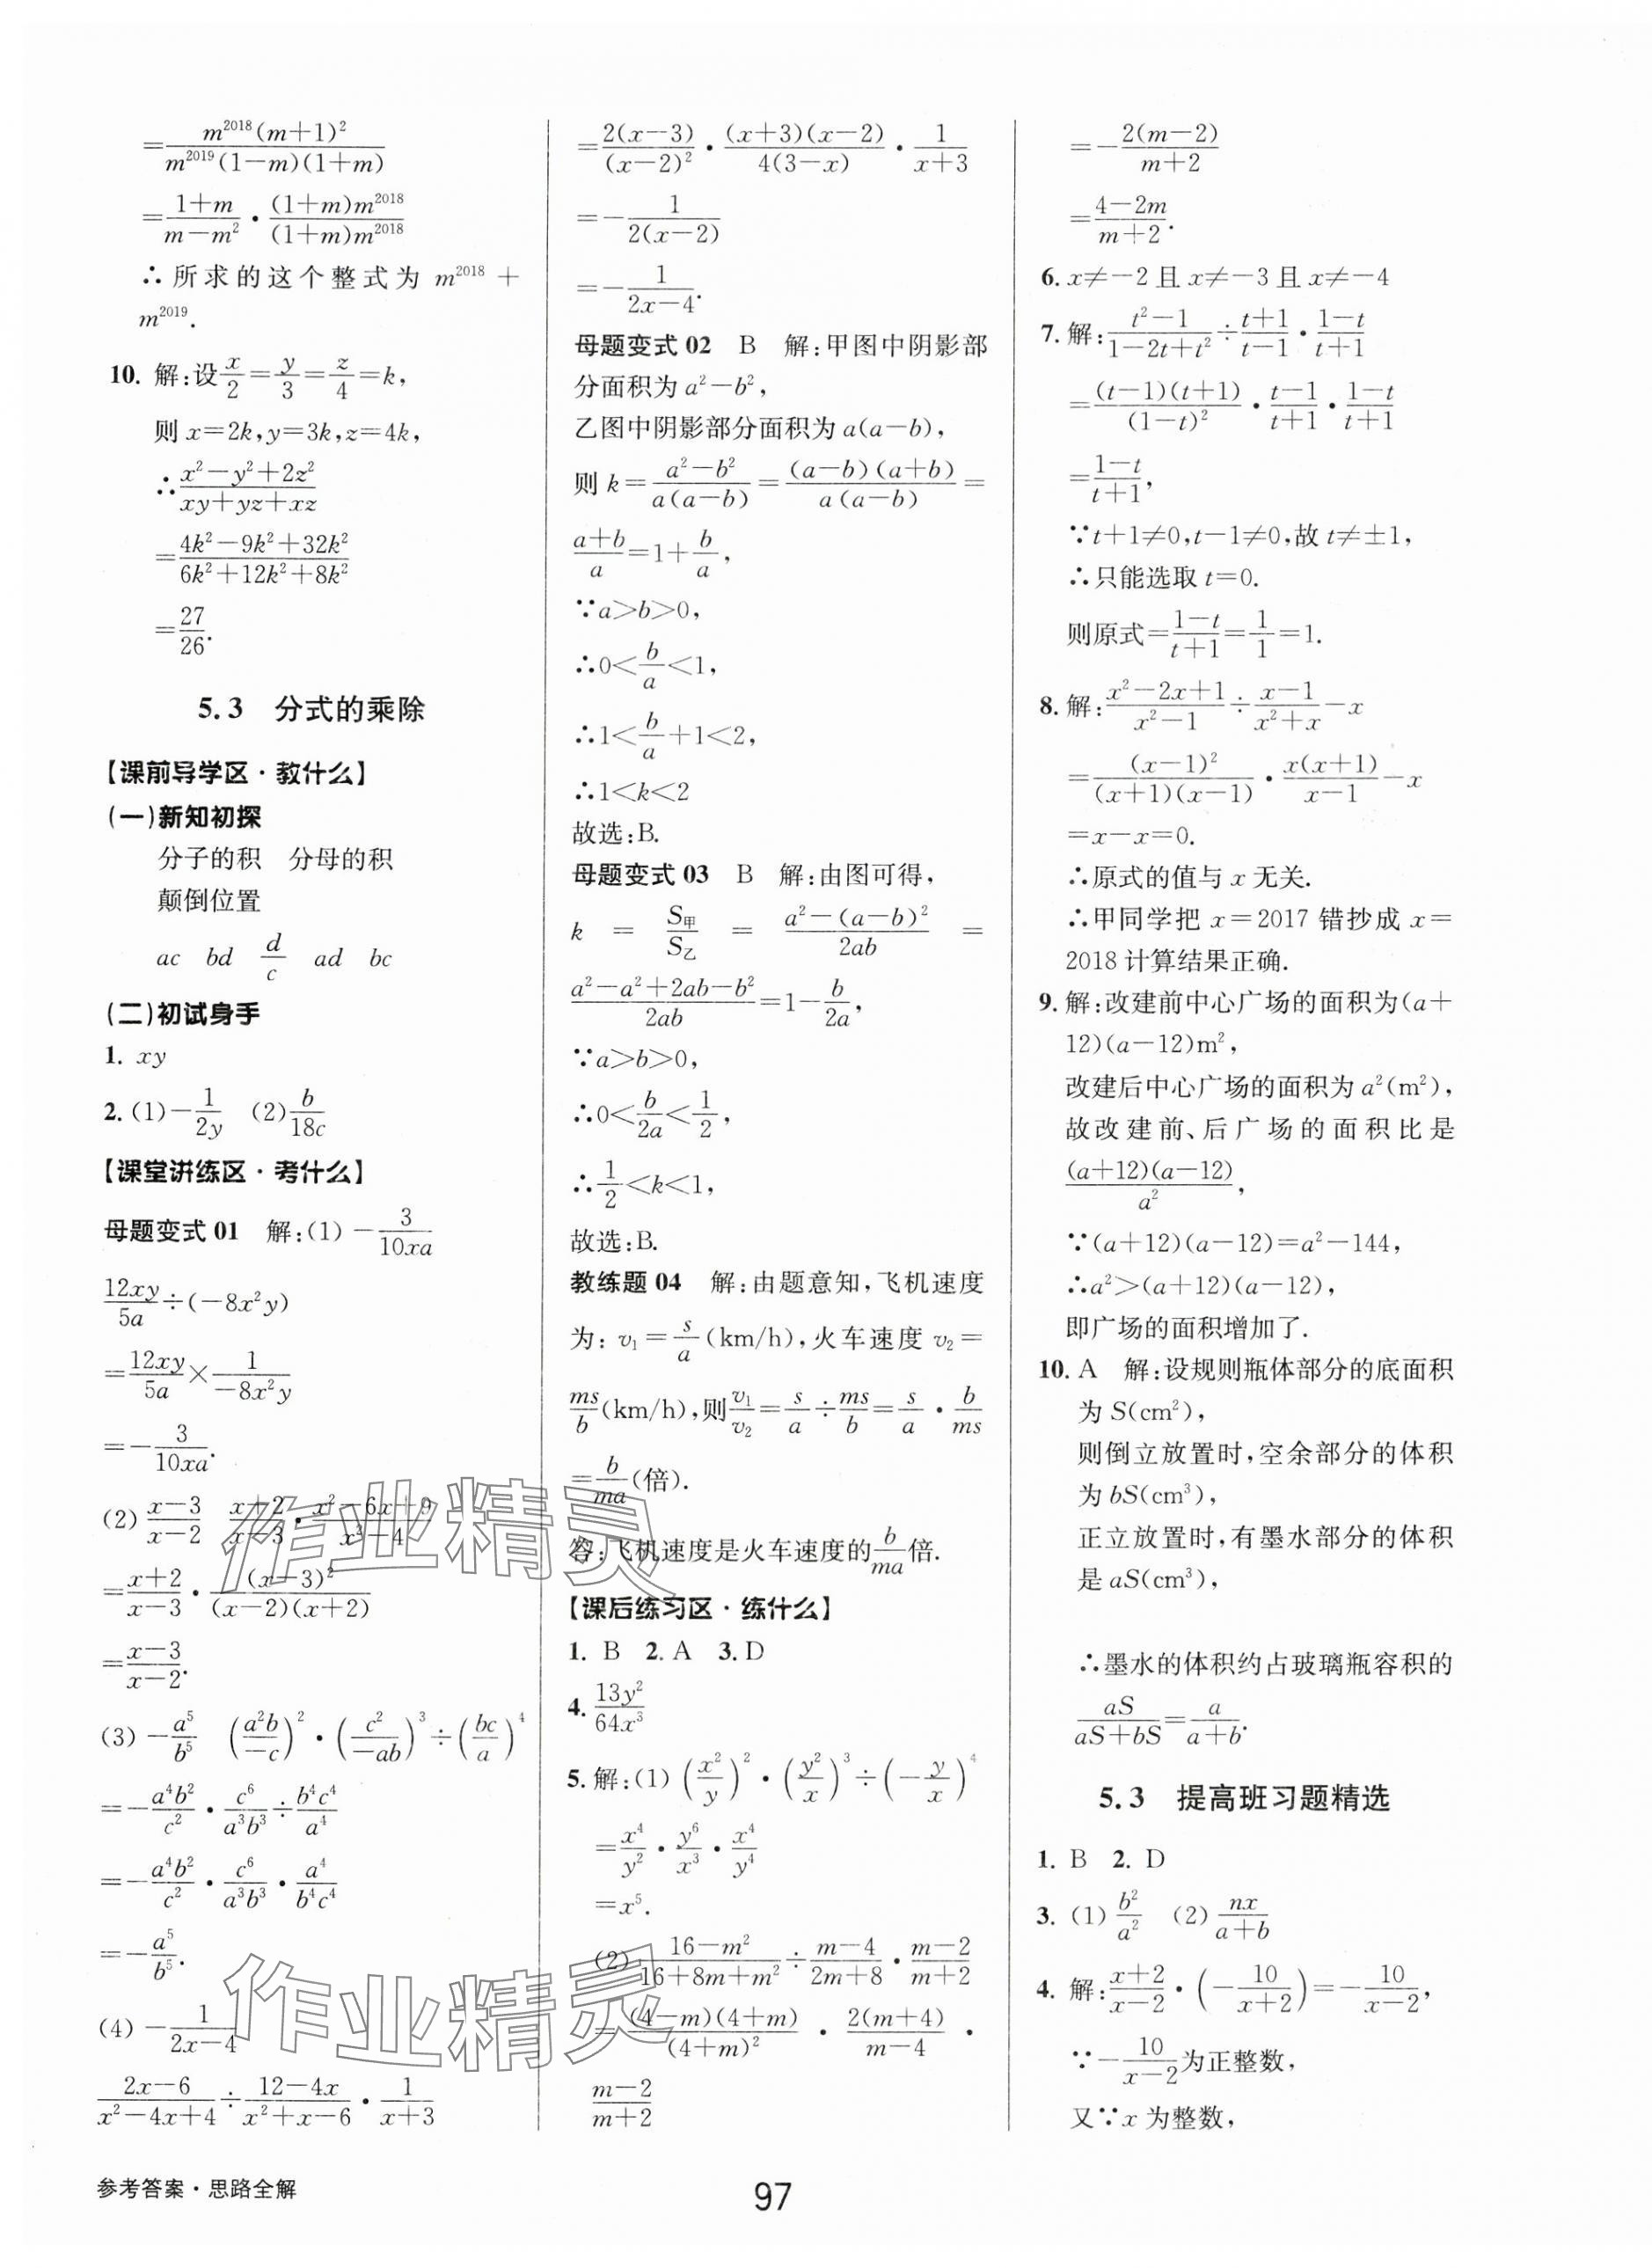 =\frac{m^{2018}(m+1)^2}{m^{2019}(1-m)(1+m)}
=\frac{1+m}{m-m^2}·\frac{(1+m)m^{2018}}{(1+m)m^{2018}}
∴所求的这个整式为 m^{2018}+
m^{2019}.
10. 解:设\frac{x}{2}=\frac{y}{3}=\frac{z}{4}=k,
则 x=2k,y=3k,z=4k,
∴\frac{x^2-y^2+2z^2}{xy+yz+xz}
=\frac{4k^2-9k^2+32k^2}{6k^2+12k^2+8k^2}
=\frac{27}{26}.
5.3 分式的乘除
【课前导学区·教什么】
(一)新知初探
分子的积 分母的积
颠倒位置
ac bd \frac{d}{c} ad bc
(二)初试身手
1. xy
2. (1)-\frac{1}{2y} (2)\frac{b}{18c}
【课堂讲练区·考什么】
母题变式 01 解:(1) -\frac{3}{10xa}
\frac{12xy}{5a}÷(-8x^2y)
=\frac{12xy}{5a}×\frac{1}{-8x^2y}
=-\frac{3}{10xa}.
(2) \frac{x-3}{x-2} \frac{x+2}{x-3}·\frac{x^2-6x+9}{x^2-4}
=\frac{x+2}{x-3}·\frac{(x-3)^2}{(x-2)(x+2)}
=\frac{x-3}{x-2}.
(3) -\frac{a^5}{b^5} (\frac{a^2b}{-c})^2·(\frac{c^2}{-ab})^3÷(\frac{bc}{a})^4
=-\frac{a^4b^2}{c^2}·\frac{c^6}{a^3b^3}÷\frac{b^4c^4}{a^4}
=-\frac{a^4b^2}{c^2}·\frac{c^6}{a^3b^3}·\frac{a^4}{b^4c^4}
=-\frac{a^5}{b^5}.
(4) -\frac{1}{2x-4}
\frac{2x-6}{x^2-4x+4}÷\frac{12-4x}{x^2+x-6}·\frac{1}{x+3}
=\frac{2(x-3)}{(x-2)^2}·\frac{(x+3)(x-2)}{4(3-x)}·\frac{1}{x+3}
=-\frac{1}{2(x-2)}
=-\frac{1}{2x-4}.
母题变式 02 B 解:甲图中阴影部
分面积为 a^2-b^2,
乙图中阴影部分面积为 a(a-b),
则 k=\frac{a^2-b^2}{a(a-b)}=\frac{(a-b)(a+b)}{a(a-b)}=
\frac{a+b}{a}=1+\frac{b}{a},
∵a>b>0,
∴0<\frac{b}{a}<1,
∴1<\frac{b}{a}+1<2,
∴1<k<2
故选:B.
母题变式 03 B 解:由图可得,
k=\frac{S_甲}{S_乙}=\frac{a^2-(a-b)^2}{2ab}=
\frac{a^2-a^2+2ab-b^2}{2ab}=1-\frac{b}{2a},
∵a>b>0,
∴0<\frac{b}{2a}<\frac{1}{2},
∴\frac{1}{2}<k<1,
故选:B.
教练题 04 解:由题意知,飞机速度
为: v_1=\frac{s}{a}(km/h),火车速度 v_2=
\frac{ms}{b}(km/h),则\frac{v_1}{v_2}=\frac{s}{a}÷\frac{ms}{b}=\frac{s}{a}·\frac{b}{ms}
=\frac{b}{ma}(倍).
答:飞机速度是火车速度的\frac{b}{ma}倍.
【课后练习区·练什么】
1. B 2. A 3. D
4. \frac{13y^2}{64x^3}
5. 解:(1) (\frac{x^2}{y})^2·(\frac{y^2}{x})^3÷(-\frac{y}{x})^4
=\frac{x^4}{y^2}·\frac{y^6}{x^3}·\frac{x^4}{y^4}
=x^5.
(2) \frac{16-m^2}{16+8m+m^2}÷\frac{m-4}{2m+8}·\frac{m-2}{m+2}
=\frac{(4-m)(4+m)}{(4+m)^2}·\frac{2(m+4)}{m-4}·
\frac{m-2}{m+2}
=-\frac{2(m-2)}{m+2}
=\frac{4-2m}{m+2}.
6. x≠-2 且 x≠-3 且 x≠-4
7. 解:\frac{t^2-1}{1-2t+t^2}÷\frac{t+1}{t-1}·\frac{1-t}{t+1}
=\frac{(t-1)(t+1)}{(1-t)^2}·\frac{t-1}{t+1}·\frac{1-t}{t+1}
=\frac{1-t}{t+1},
∵t+1≠0,t-1≠0,故 t≠±1,
∴只能选取 t=0.
则原式=\frac{1-t}{t+1}=\frac{1}{1}=1.
8. 解:\frac{x^2-2x+1}{x^2-1}÷\frac{x-1}{x^2+x}-x
=\frac{(x-1)^2}{(x+1)(x-1)}·\frac{x(x+1)}{x-1}-x
=x-x=0.
∴原式的值与 x 无关.
∴甲同学把 x=2017 错抄成 x=
2018 计算结果正确.
9. 解:改建前中心广场的面积为(a+
12)(a-12)m^2,
改建后中心广场的面积为 a^2(m^2),
故改建前、后广场的面积比是
\frac{(a+12)(a-12)}{a^2},
∵(a+12)(a-12)=a^2-144,
∴a^2>(a+12)(a-12),
即广场的面积增加了.
10. A 解:设规则瓶体部分的底面积
为 S(cm^2),
则倒立放置时,空余部分的体积
为 bS(cm^3),
正立放置时,有墨水部分的体积
是 aS(cm^3),
∴墨水的体积约占玻璃瓶容积的
\frac{aS}{aS+bS}=\frac{a}{a+b}.
5.3 提高班习题精选
1. B 2. D
3. (1) \frac{b^2}{a^2} (2) \frac{nx}{a+b}
4. 解:\frac{x+2}{x-2}·(-\frac{10}{x+2})=-\frac{10}{x-2},
∵-\frac{10}{x-2}为正整数,
又∵x 为整数,
作业精灵
作业精灵
参考答案·思路全解
97